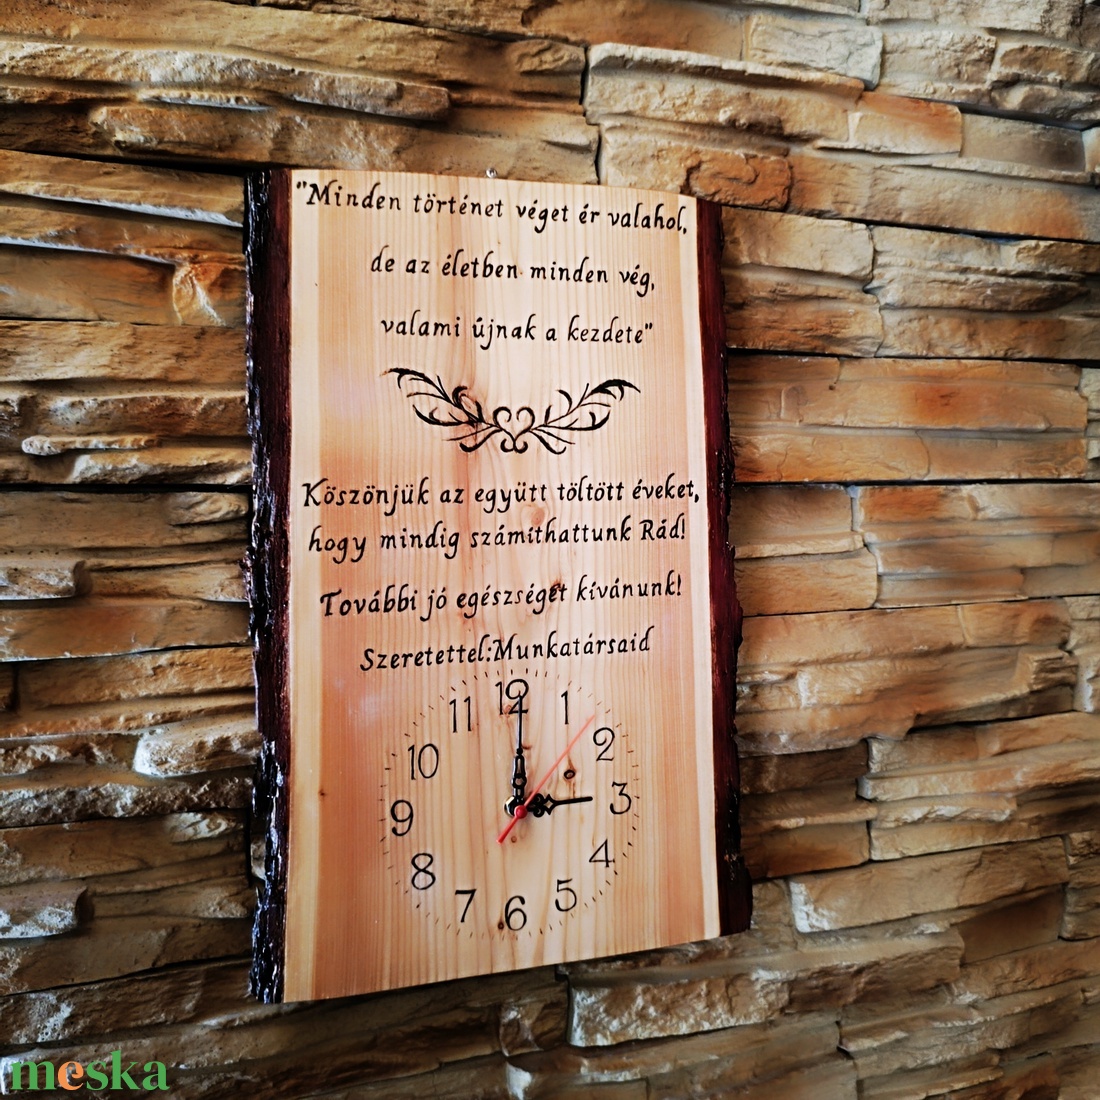 "Minden történet véget ér valahol,
de az életben minden vég,
valami újnak a kezdete"
Köszönjük az együtt töltött éveket,
hogy mindig számíthattunk Rád!
További jó egészséget kívánunk!
Szeretettel:Munkatársaid
12
11 1
10 2
9 3
8 4
7 5
6
meska